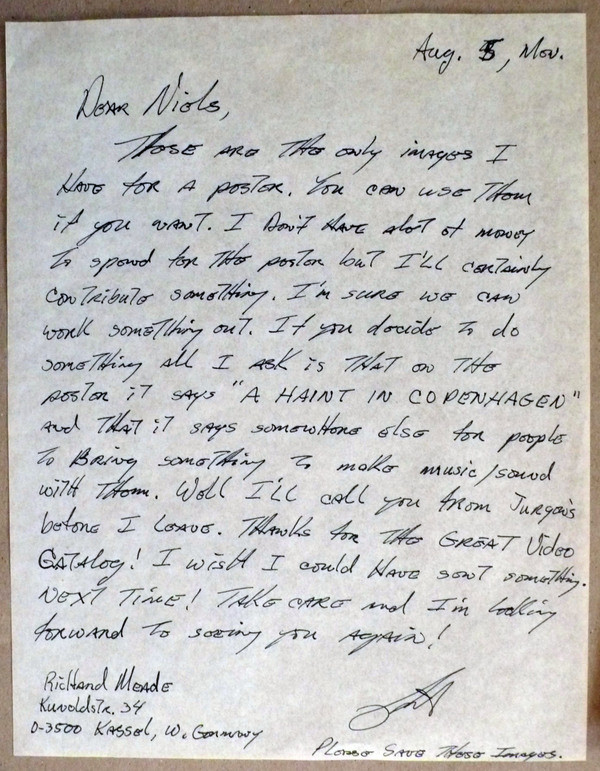 Aug. 5, Mon.
Dear Niels,
These are the only images I
have for a poster. You can use them
if you want. I don't have alot of money
to spend for the poster but I'll certainly
contribute something. I'm sure we can
work something out. If you decide to do
something all I ask is that on the
poster it says "A HAINT IN COPENHAGEN"
and that it says somewhere else for people
to bring something to make music/sound
with them. Well I'll call you from Jurgen's
before I leave. Thanks for the GREAT Video
Catalog! I wish I could have sent something.
NEXT TIME! TAKE CARE and I'm looking
forward to seeing you again!
Richard Meade
Kunoldstr. 34
D-3500 Kassel, W. Germany
Please Save These Images.